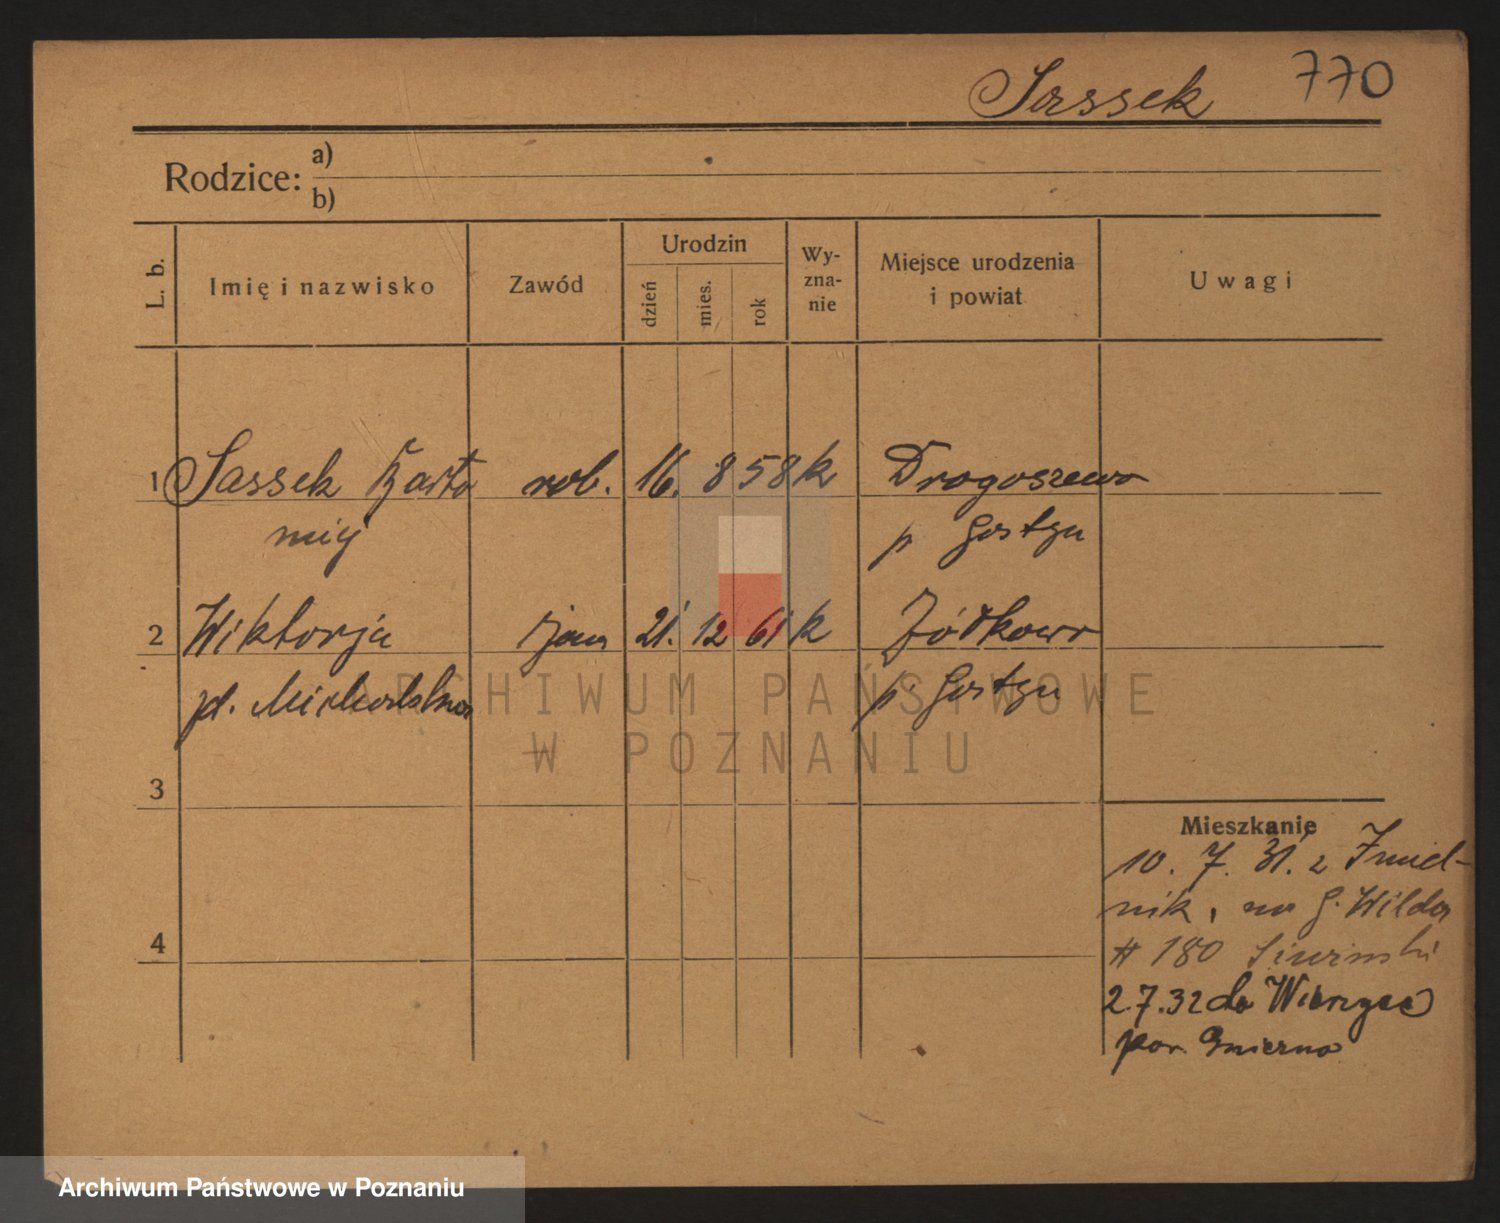 Sassek 770
Rodzice: a)
b)
L. b. Imię i nazwisko Zawód Urodzin dzień mies. rok Wy-zna-nie Miejsce urodzenia i powiat Uwagi
1 Sassek Barto rob. 16. 8 58 k Drogoszewo
miej p Gostyń
2 Wiktorja żona 21. 12 61 k Żółkowo
zd. p. Gostyń
ARCHIWUM PAŃSTWOWE
W POZNANIU
3
Mieszkanie
10. 7. 31. z
nik, na G. Wilda
4 # 180
2.7.32 do
pow. Gniezno
Archiwum Państwowe w Poznaniu